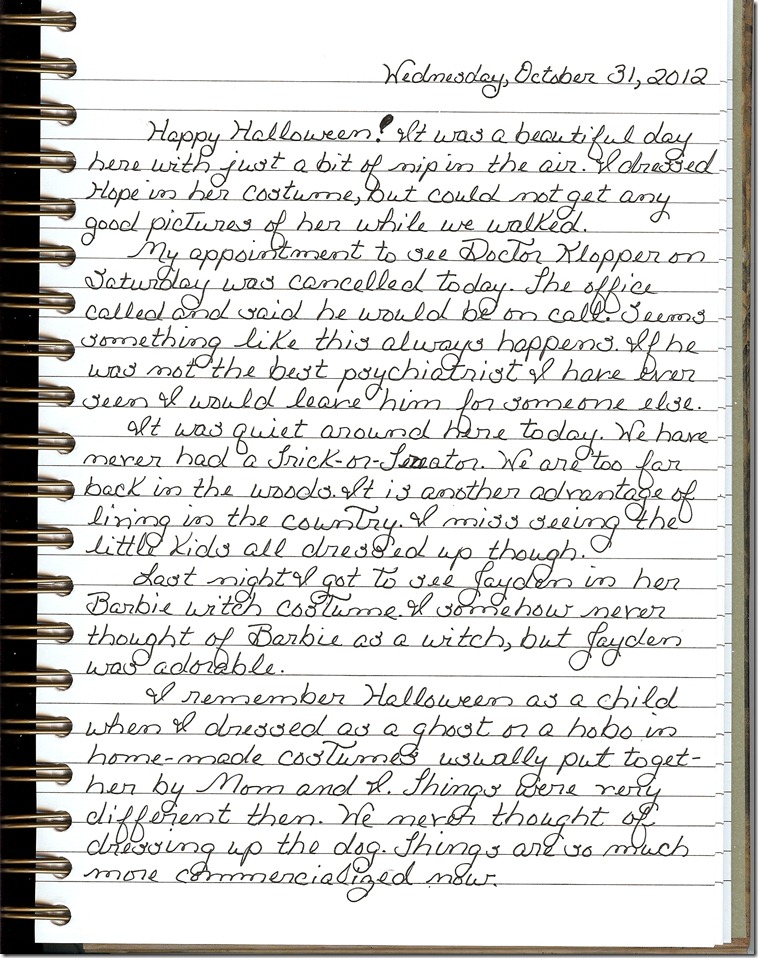 Wednesday, October 31, 2012
Happy Halloween! It was a beautiful day
here with just a bit of nip in the air. I dressed
Hope in her costume, but could not get any
good pictures of her while we walked.
My appointment to see Doctor Klopper on
Saturday was cancelled today. The office
called and said he would be on call. Seems
something like this always happens. If he
was not the best psychiatrist I have ever
seen I would leave him for someone else.
It was quiet around here today. We have
never had a Trick-or-Treator. We are too far
back in the woods. It is another advantage of
living in the country. I miss seeing the
little kids all dressed up though.
Last night I got to see Jayden in her
Barbie witch costume. I somehow never
thought of Barbie as a witch, but Jayden
was adorable.
I remember Halloween as a child
when I dressed as a ghost or a hobo in
home-made costumes usually put toget-
her by Mom and I. Things were very
different then. We never thought of
dressing up the dog. Things are so much
more commercialized now.